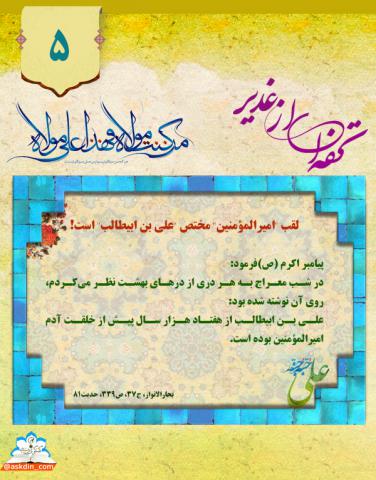 ۵
نکته هایی از غدیر
من کنت مولاه فهذا علی مولاه
لقب "امیرالمؤمنین" مختص "علی بن ابیطالب" است!
پیامبر اکرم (ص)فرمود:
در شب معراج به هر دری از درهای بهشت نظر می‌کردم،
روی آن نوشته شده بود:
علی بن ابیطالب از هفتاد هزار سال پیش از خلقت آدم
امیرالمؤمنین بوده است.
علی
بحارالانوار، ج۳۷، ص۳۳۹، حدیث۸۱
@askdin_com